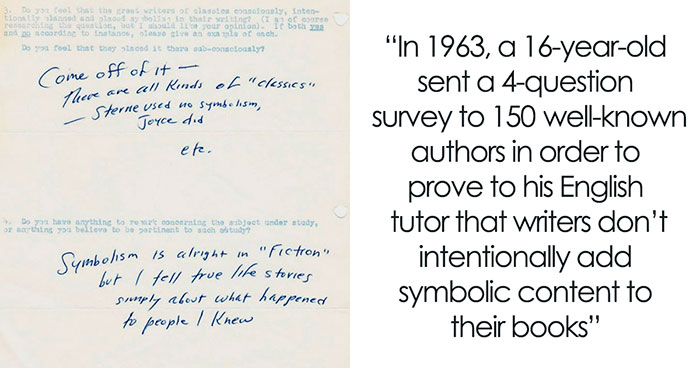 3. Do you feel that the great writers of classics consciously, inten-
tionally planned and placed symbols in their writing? (I am of course
researching the question, but I should like your opinion). If both yes
and no according to instance, please give an example of each.
Do you feel that they placed it there sub-consciously?
Come off of it —
There are all kinds of "classics"
— Sterne used no symbolism,
Joyce did
etc.
4. Do you have anything to remark concerning the subject under study,
or anything you believe to be pertinent to such study?
Symbolism is alright in "Fiction"
but I tell true life stories
simply about what happened
to people I knew
“In 1963, a 16-year-old
sent a 4-question
survey to 150 well-known
authors in order to
prove to his English
tutor that writers don’t
intentionally add
symbolic content to
their books”